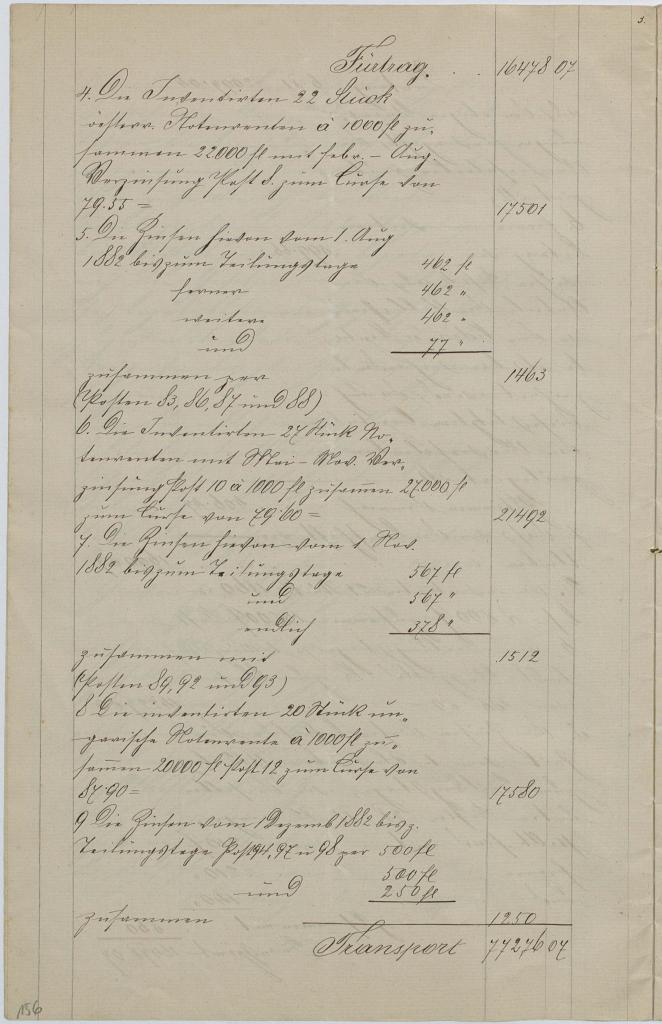 5.
Fürtrag. . . 16478 07
4. Die Inventirten 22 Stück
österr. Notenrenten á 1000 fl zu-
sammen 22.000 fl mit febr. – Aug.
Verzinsung Post 8. zum Curse von
79.55 = 17501
5. Die Zinsen hievon vom 1. Aug
1882 bis zum Teilungstage 462 fl
ferner 462 "
weitere 462 "
und 77 "
zusammen per 1463
(Posten 83, 86, 87 und 88)
6. Die Inventirten 27 Stück No-
tenrenten mit Mai – Nov. Ver-
zinsung Post 10 á 1000 fl zusamen 27.000 fl
zum Curse von 79.60 = 21492
7. Die Zinsen hievon vom 1 Nov.
1882 bis zum Teilungstage 567 fl
und 567 "
endlich 378 "
zusammen mit 1512
(Posten 89, 92 und 93)
8 Die inventirten 20 Stück un-
garische Notenrente á 1000 fl zu-
samen 20000 fl Post 12 zum Curse von
87.90 = 17580
9 Die Zinsen vom 1 Dezemb 1882 bis z.
Teilungstage Post 94, 97 u 98 per 500 fl
500 fl
und 250 fl
zusammen 1250
Transport 77276 07
156